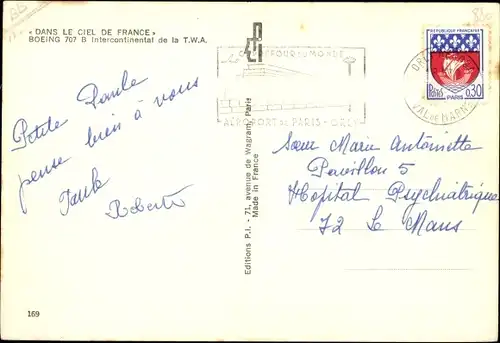 « DANS LE CIEL DE FRANCE »
BOEING 707 B Intercontinental de la T.W.A.
Petite Paule
pense bien à vous
Paule
Roberto
169
Editions P.I. - 71, avenue de Wagram, Paris
Made in France
CARREFOUR DU MONDE
AEROPORT DE PARIS - ORLY
REPUBLIQUE FRANÇAISE
PARIS
0,30
VAL DE MARNE
Sœur Marie Antoinette
Pavillon 5
Hôpital Psychiatrique
72 Le Mans